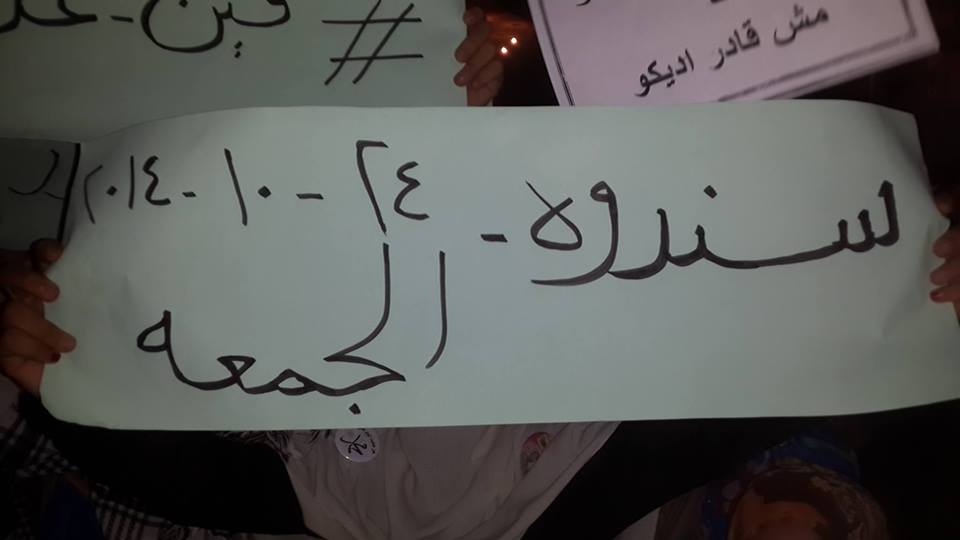 # فين_
مش قادر اديكو
سندوه - ٢٤ - ١٠ - ٢٠١٤
الجمعه